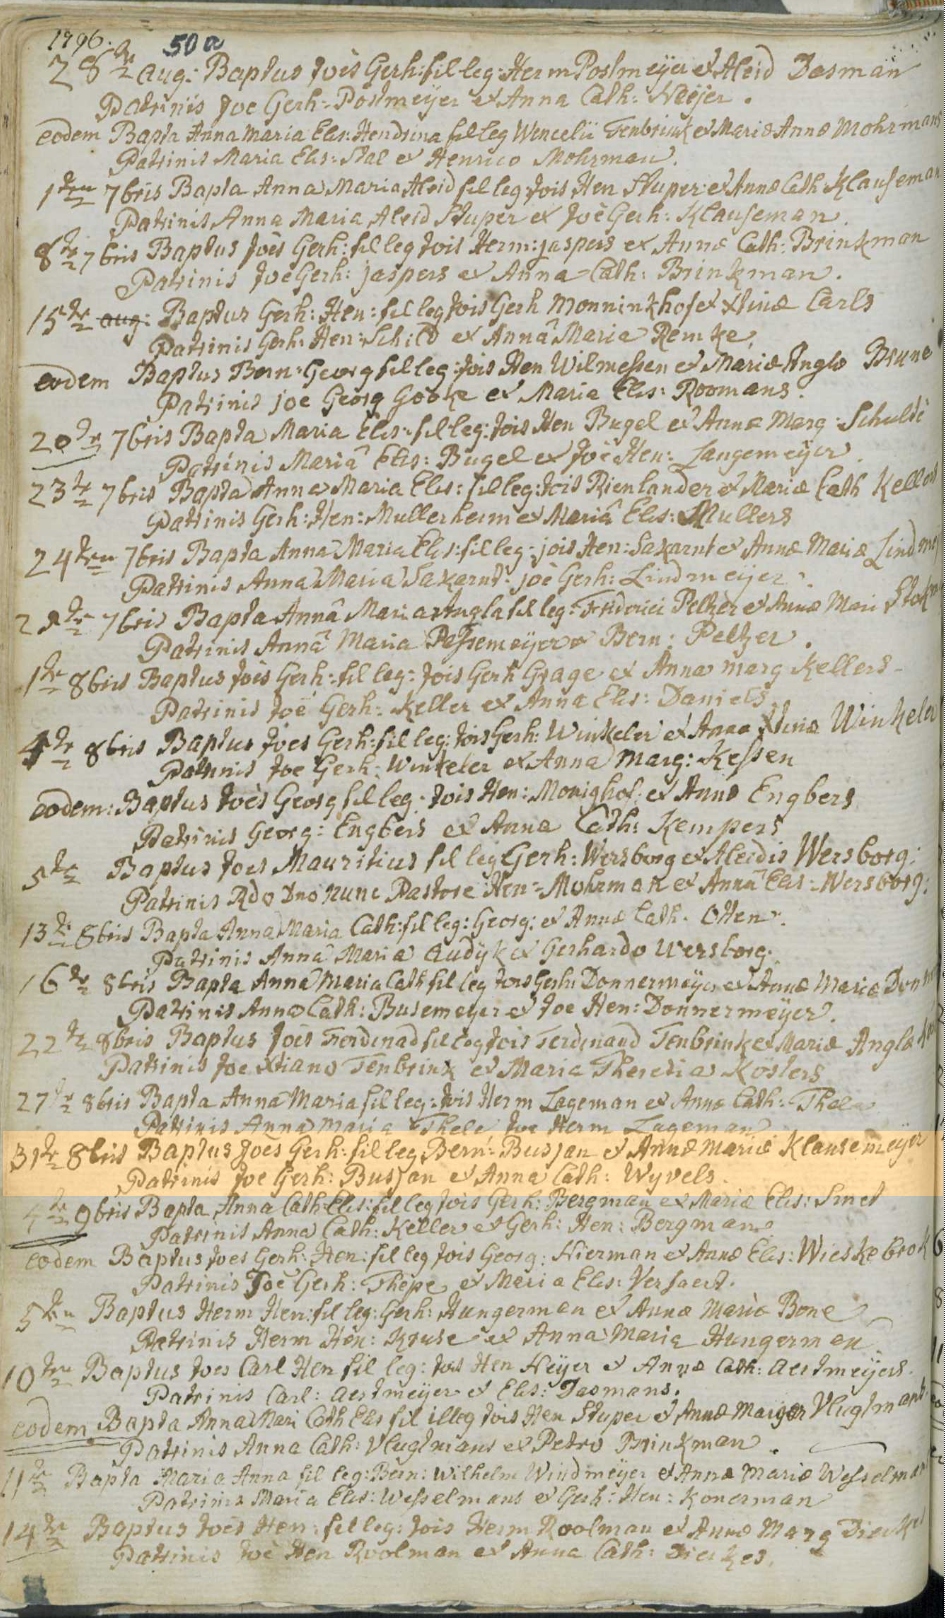 1796. 50a
28te aug: Baptus Joës Gerh: fil leg: Herm Postmeijer et Aleid Dasman
Patrinis Joe Gerh: Postmeijer et Anna Cath: Meijer.
eodem Bapta Anna Maria Elis: Hendrina fil leg Wencelii Tenbrink et Mariæ Annæ Mohrmans
Patrinis Maria Elis: Stal et Henrico Mohrman.
1ten 7bris Bapta Anna Maria Aleid fil leg: Jois Hen Stuper et Annæ Cath Klauseman
Patrinis Anna Maria Aleid Stuper et Joë Gerh: Klauseman.
8te 7bris Baptus Joës Gerh: fil leg Jois Herm: Jaspers et Annæ Cath: Brinkman
Patrinis Joe Gerh: Jaspers et Anna Cath: Brinkman.
15te aug: Baptus Gerh: Hen: fil leg Jois Gerh Monninkhof et Xtinæ Carls
Patrinis Gerh: Hen: Schild et Annâ Maria Remke.
eodem Baptus Bern: Georg fil leg: Jois Hen Wilmessen et Mariæ Anglæ Brune
Patrinis Joe Georg Gobke et Maria Elis: Roomans.
20te 7bris Bapta Maria Elis: fil leg: Jois Hen Bugel et Annæ Marg: Schulte
Patrinis Mariâ Elis: Bugel et Joë Hen: Langemeijer.
23te 7bris Bapta Anna Maria Elis: fil leg: Jois Rienlander et Mariæ Cath Kellers
Patrinis Gerh: Hen: Mullerheim et Mariâ Elis: Mullers
24ten 7bris Bapta Anna Maria Elis: fil leg: Jois Hen: Saxarnt et Annæ Mariæ Lindmeij
Patrinis Anna Maria Saxarnt: Joë Gerh: Lindmeijer.
29te 7bris Bapta Annâ Maria Angla fil leg: Friderici Peltzer et Annæ Mari
Patrinis Annâ Maria et Bern: Peltzer.
1te 8bris Baptus Joës Gerh: fil leg: Jois Gerh Grage et Anna Marg Kellers
Patrinis Joë Gerh: Keller et Anna Elis: Daniels.
4te 8bris Baptus Joës Gerh: fil leg: Jois Gerh: Winkeler et Anna Xtinæ Winkeler
Patrinis Joe Gerh: Winkeler et Anna Marg: Kessen
eodem: Baptus Joës Georg fil leg: Jois Hen: Monighof: et Annæ Engbers
Patrinis Georg: Engbers et Anna Cath: Kempers
5te Baptus Joes Mauritius fil leg Gerh: Wersborg et Aleidis Wersborg:
Patrinis Rdo Dno nunc Pastore Hen: Mohrman et Annâ Elis: Wersborg:
13te 8bris Bapta Anna Maria Cath: fil leg: Georg: et Annæ Cath: Otten.
Patrinis Annâ Maria Audijk et Gerhardo Wersborg.
16te 8bris Bapta Anna Maria Cath fil leg Jois Gerh: Donnermeijer et Annæ Mariæ Donn
Patrinis Anna Cath: Busemeijer et Joe Hen: Donnermeijer.
22te 8bris Baptus Joës Ferdinad fil leg Jois Ferdinand Tenbrink et Mariæ Anglæ
Patrinis Joe Xtiano Tenbrink et Maria Theresia Kosters
27te 8bris Bapta Anna Maria fil leg: Jois Herm Lageman et Annæ Cath: Thele
Patrinis Anna Maria Thele Joe Herm Lageman
31te 8bris Baptus Joes Gerh: fil leg Bern: Busjan et Annæ Mariæ Klausemeijer
Patrinis Joe Gerh: Busjan et Anna Cath: Wyvels.
4te 9bris Bapta Anna Cath Elis: fil leg Jois Gerh: Bergman et Mariæ Elis: Smet
Patrinis Anna Cath: Keller et Gerh: Hen: Bergman
eodem Baptus Joes Gerh: Hen: fil leg Jois Georg: Nierman et Annæ Elis: Wieskebrok
Patrinis Joë Gerh: Thepe et Maria Elis: Versaert.
5ten Baptus Herm Hen: fil leg: Gerh: Hungerman et Annæ Mariæ Bone
Patrinis Herm Hen: Kruse et Anna Maria Hungerman
10te Baptus Joes Carl Hen fil leg: Jois Hen Meijer et Annæ Cath: Aestmeijers.
Patrinis Carl: Aestmeijer et Elis: Dasmans.
eodem Bapta Anna Mari Cath Elis fil illeg Jois Hen Stuper et Annæ Marger Vlugtmans
Patrinis Anna Cath: Vlugtmans et Petro Brinkman.
11te Bapta Maria Anna fil leg: Bern: Wilhelm Windmeijer et Annæ Mariæ Wesselman
Patrinis Maria Elis: Wesselmans et Gerh: Hen: Konerman
14te Baptus Joës Hen: fil leg: Jois Herm Roolman et Annæ Marg Dierkes
Patrinis Joë Hen Roolman et Anna Cath: Dierkes.